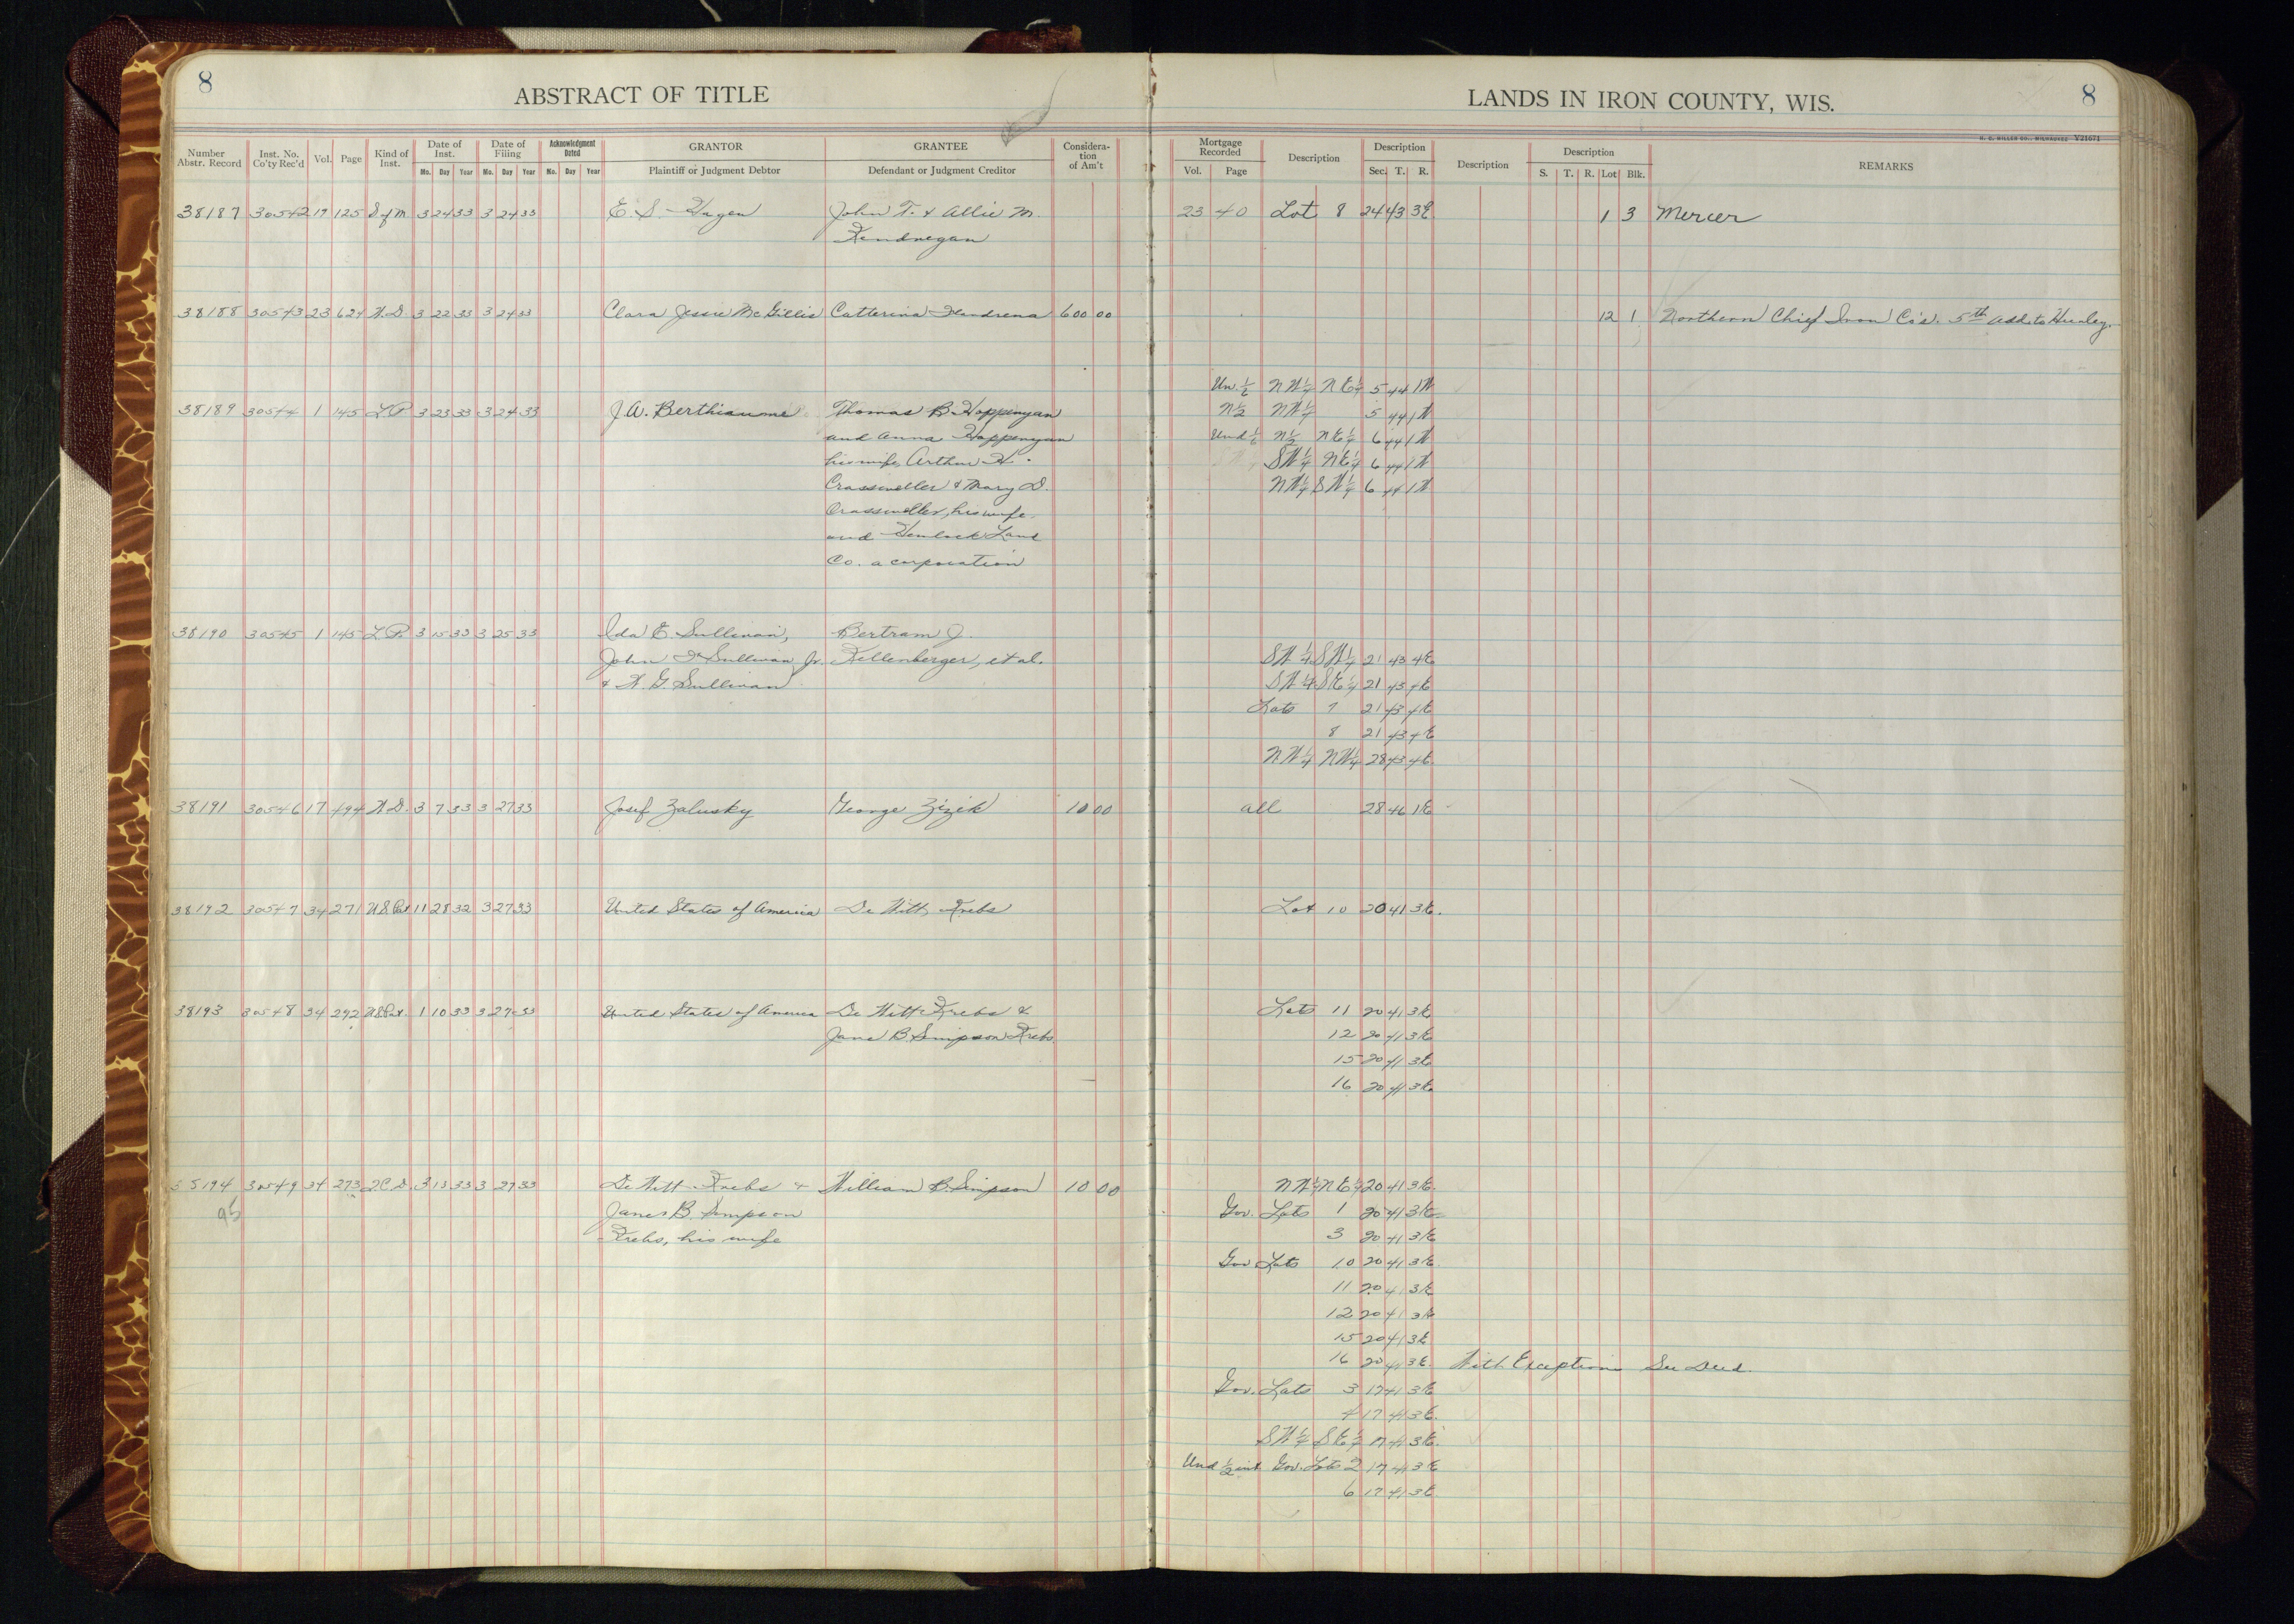 8
ABSTRACT OF TITLE
LANDS IN IRON COUNTY, WIS.
8
H. C. MILLER CO., MILWAUKEE V21671
Number Abstr. Record Inst. No. Co'ty Rec'd Vol. Page Kind of Inst. Date of Inst. Mo. Day Year Date of Filing Mo. Day Year Acknowledgment Dated Mo. Day Year GRANTOR Plaintiff or Judgment Debtor GRANTEE Defendant or Judgment Creditor Consideration of Am't
Mortgage Recorded Vol. Page Description Description Sec. T. R. Description Description S. T. R. Lot Blk. REMARKS
38187 30542 19 125 S of M 3 24 33 3 24 33 E. S. Hagen John T. & Allie M. 23 40 Lot 8 24 43 3E 1 3 Mercer
Kendregan
38188 30543 23 624 W.D. 3 22 33 3 24 33 Clara Jessie McGillis Catterina 600 00 12 1 Northern Chief Iron Co's. 5th Add. to Hurley.
Un. 1/6 NW1/4 NE1/4 5 44 1W
38189 30544 1 145 L.P. 3 23 33 3 24 33 J.A. Berthiaume Thomas B. Hoppenyan N1/2 NW1/4 5 44 1W
and Anna Hoppenyan Und 1/6 N1/2 NE1/4 6 44 1W
his wife, Arthur H. SW1/4 NE1/4 6 44 1W
Crassweller & Mary D. NW1/4 SW1/4 6 44 1W
Crassweller, his wife.
and Hemlock Land
Co. a corporation
38190 30545 1 145 L.P. 3 15 33 3 25 33 Ida E. Sullivan, Bertram J.
John Sullivan, Jr. Kellenberger, et al. SW1/4 SW1/4 21 43 4E
& W. G. Sullivan SW1/4 SE1/4 21 43 4E
Lots 7 21 43 4E
8 21 43 4E
NW1/4 NW1/4 28 43 4E.
38191 30546 17 494 W.D. 3 7 33 3 27 33 Josef Zalusky George Zizik 10 00 all 28 46 1E
38192 30547 34 271 U.S Pat 11 28 32 3 27 33 United States of America De Witt Krebs Lot 10 20 41 3E.
38193 30548 34 272 U.S Pat. 1 10 33 3 27 33 United States of America De Witt Krebs & Lots 11 20 41 3E
Jane B. Simpson Krebs 12 20 41 3E
15 20 41 3E
16 20 41 3E
194 30549 34 273 Q.C.D. 3 13 33 3 27 33 De Witt Krebs & William B. Simpson 10 00 NW1/4 NE1/4 20 41 3E.
95 Janes B. Simpson Gov. Lots 1 20 41 3E
Krebs, his wife 3 20 41 3E
Gov Lots 10 20 41 3E.
11 20 41 3E
12 20 41 3E
15 20 41 3E
16 20 41 3E. With Exceptions See Deed.
Gov. Lots 3 17 41 3E
4 17 41 3E.
SW1/4 SE1/4 17 41 3E.
Und 1/2 int Gov. Lots 2 17 41 3E
6 17 41 3E.